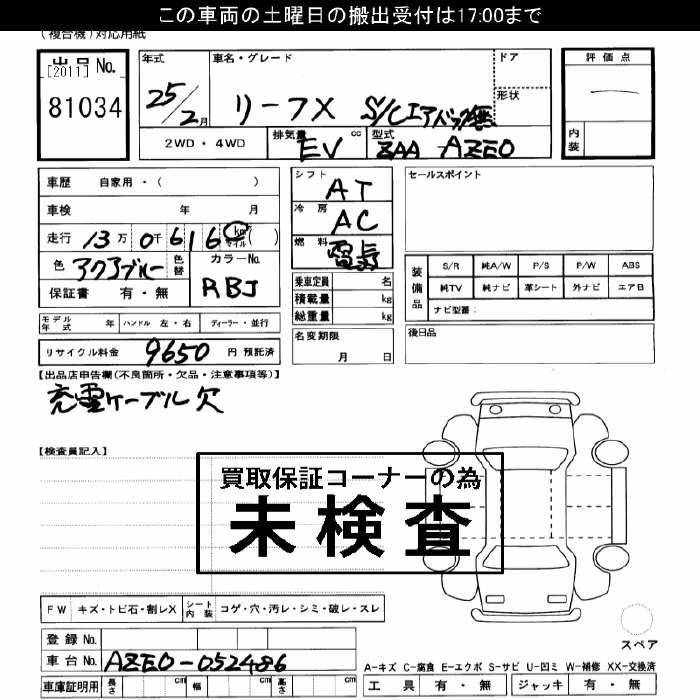 この車両の土曜日の搬出受付は17:00まで
(複合機)対応用紙
出品 No.
[2011]
81034
年式
25/2月
車名・グレード
リーフX S/Cエアバック無
ドア
形状
評価点
内装
2WD・4WD
排気量 cc
EV
型式
ZAA-AZE0
車歴 自家用・( )
車検 年 月
走行 13万 0千 616 km マイル ( )
色 アクアブルー 色替
カラーNo.
RBJ
保証書 有・無
モデル年式 年 ハンドル 左・右 ディーラー・並行
リサイクル料金 9650 円 預託済
シフト AT
冷房 AC
燃料 電気
乗車定員 名
積載量 kg
総重量 kg
名変期限
月 日
セールスポイント
装備品
S/R 純A/W P/S P/W ABS
純TV 純ナビ 革シート 外ナビ エアB
ナビ型番:
後日品
【出品店申告欄(不良箇所・欠品・注意事項等)】
充電ケーブル欠
【検査員記入】
買取保証コーナーの為
未検査
FW キズ・トビ石・割レX シート内装 コゲ・穴・汚レ・シミ・破レ・スレ
登録 No.
車台 No. AZE0-052486
車庫証明用 長さ cm 幅 cm 高さ cm
スペア
A-キズ C-腐食 E-エクボ S-サビ U-凹ミ W-補修 XX-交換済
工具 有・無 ジャッキ 有・無